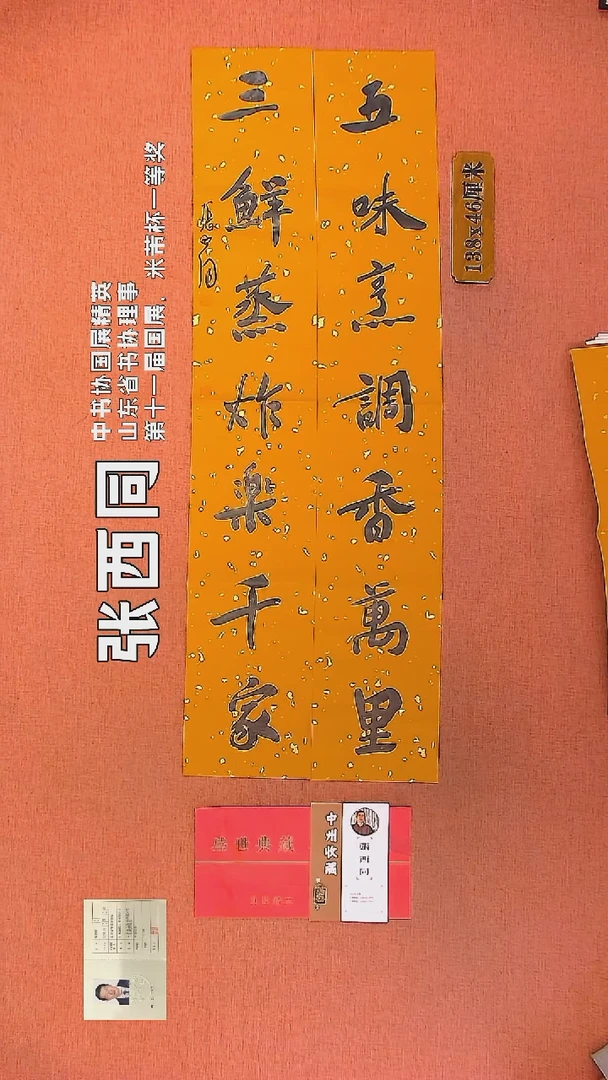 五味烹調香萬里
三鮮蒸炸樂千家
張西同
138x46厘米
张西同
中书协国展精英
山东省书协理事
第十一届国展、米芾杯一等奖
盛世典藏
中州收藏
張西同